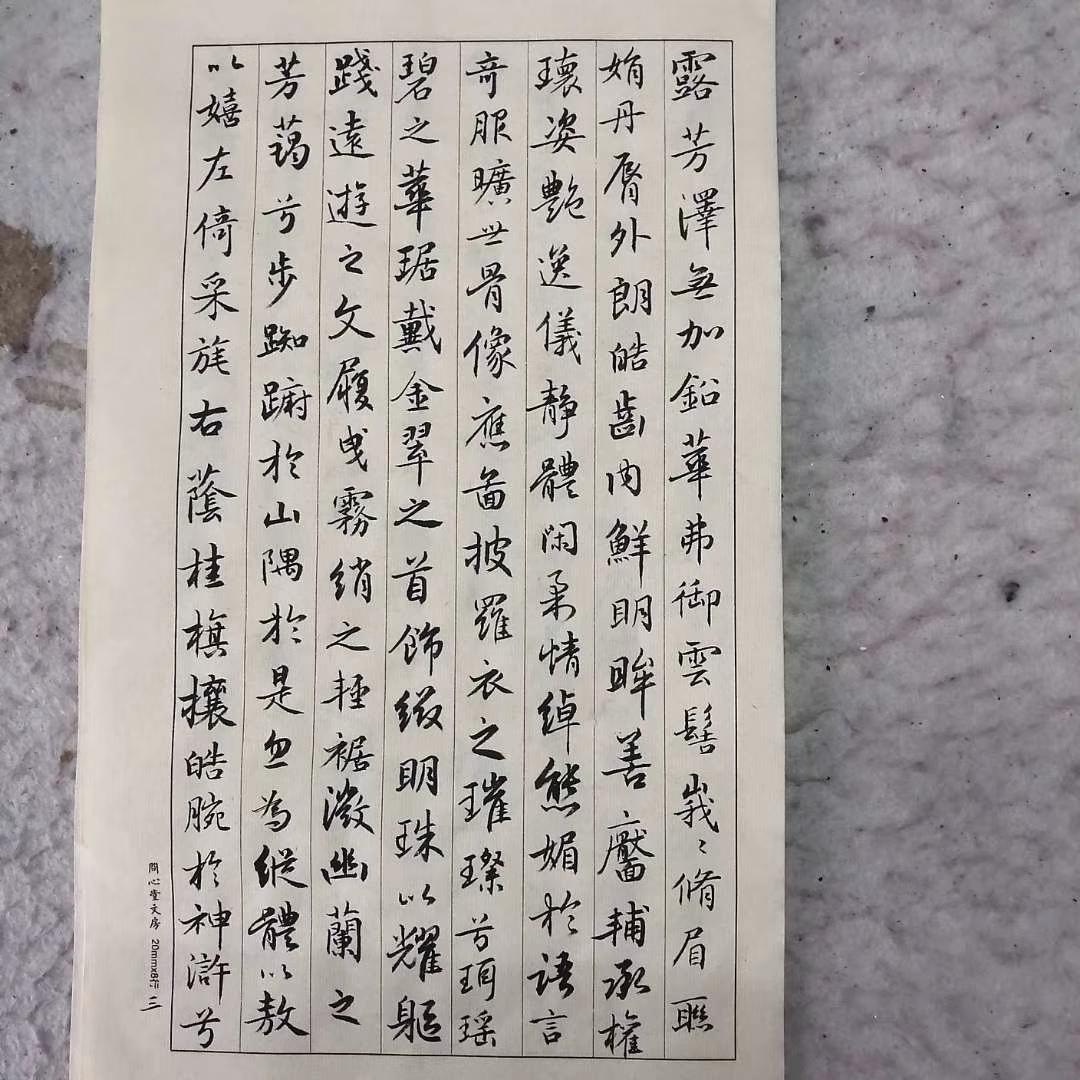 露芳澤無加鉛華弗御雲髻峩〻脩眉聯
娟丹脣外朗皓齒内鮮明眸善靨輔承權
瓌姿艷逸儀靜體閑柔情綽態媚於語言
奇服曠世骨像應啚披羅衣之璀璨兮珥瑶
碧之華琚戴金翠之首飾綴明珠以耀軀
踐遠遊之文履曳霧綃之輕裾微幽蘭之
芳藹兮步踟躕於山隅於是忽焉縱體以敖
以嬉左倚采旄右蔭桂旗攘皓腕於神滸兮
問心堂文房 20mmx8行 三